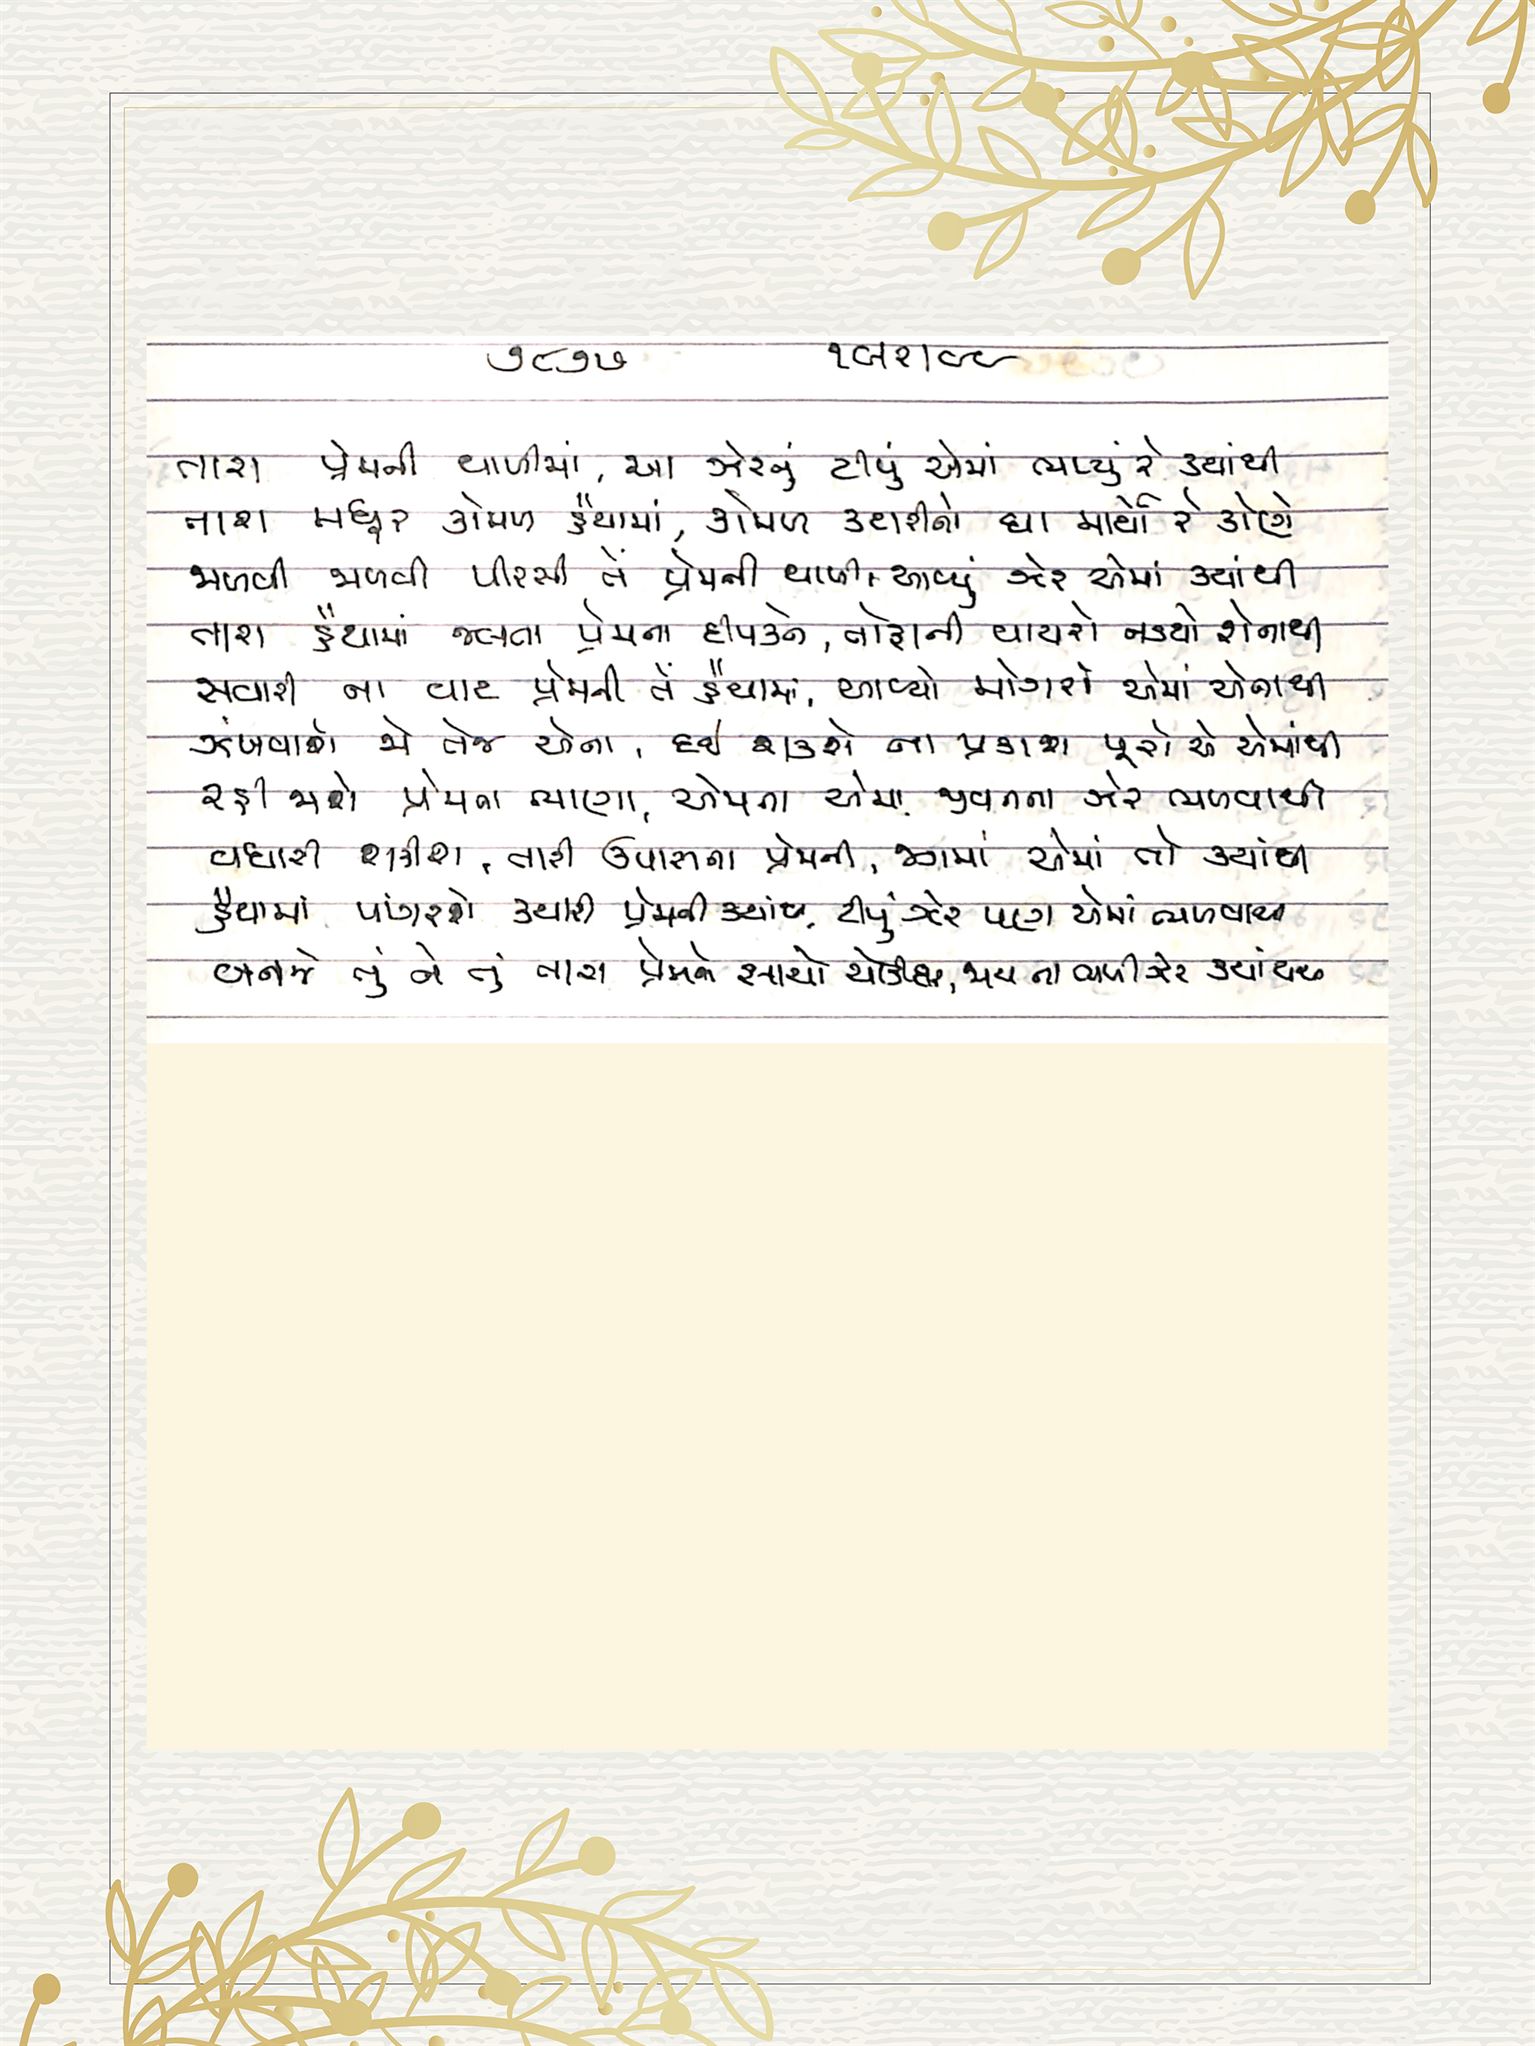 ૭૮૭૫
તારા પ્રેમની થાળીમાં, આ ઝેરનું ટીપું એમાં ભળ્યું રે ક્યાંથી
તારા મધુર કોમળ હૈયામાં, કોમળ કટારીનો ઘા માર્યો રે કોણે
જાળવી જાળવી પીરસી તેં પ્રેમની થાળી, આવ્યું ઝેર એમાં ક્યાંથી
તારા હૈયામાં જલતા પ્રેમના દીપકને, તોફાની વાયરો નડયો શેનાથી
સવારી ના વાટ પ્રેમની તેં હૈયામાં, આવ્યો મોગરો એમાં એનાથી
ઝંખવાશે જો તેજ એના, દઈ શકશે ના પ્રકાશ પૂરો એ એમાંથી
રહી જાશે પ્રેમના ભાણા, એમના એમ, જીવનના ઝેર ભળવાથી
વધારી શકીશ, તારી ઉપાસના પ્રેમની, જગમાં એમાં તો ક્યાંથી
હૈયામાં પાંગરશે ક્યારી પ્રેમની ક્યાંથી, ટીપું ઝેર પણ એમાં ભળવાથી
બનજે તું ને તું તારા પ્રેમનો સાચો ચોકીદાર, જાય ના ભળી ઝેર ક્યાંયથી